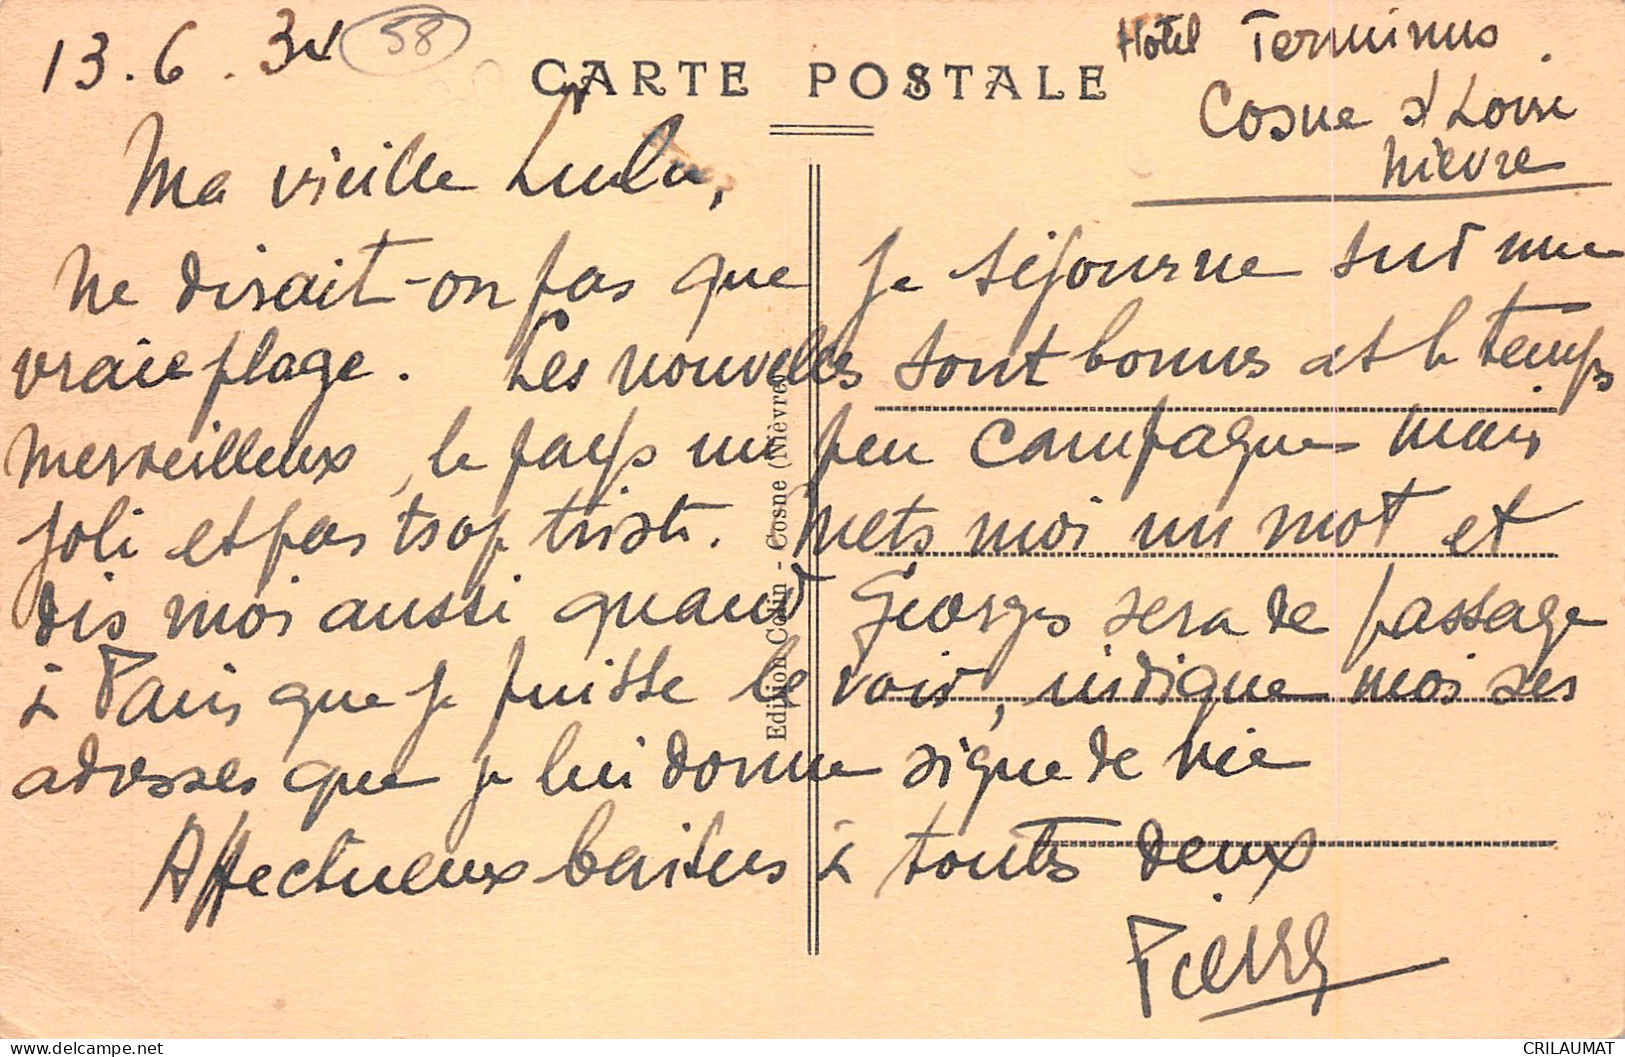 13.6.34
58
CARTE POSTALE
Hôtel Terminus
Cosne s/ Loire
Nièvre
Ma vieille Lulu,
Ne dirait-on pas que je séjourne sur une
vraie plage. Les nouvelles sont bonnes et le temps
merveilleux, le pays un peu campagne mais
joli et pas trop triste. Mets moi un mot et
dis moi aussi quand Georges sera de passage
à Paris que je puisse le voir, indique moi ses
adresses que je lui donne signe de vie
Affectueux baisers à toutes deux
Pierre
Edition Colin - Cosne (Nièvre)
CRILAUMAT